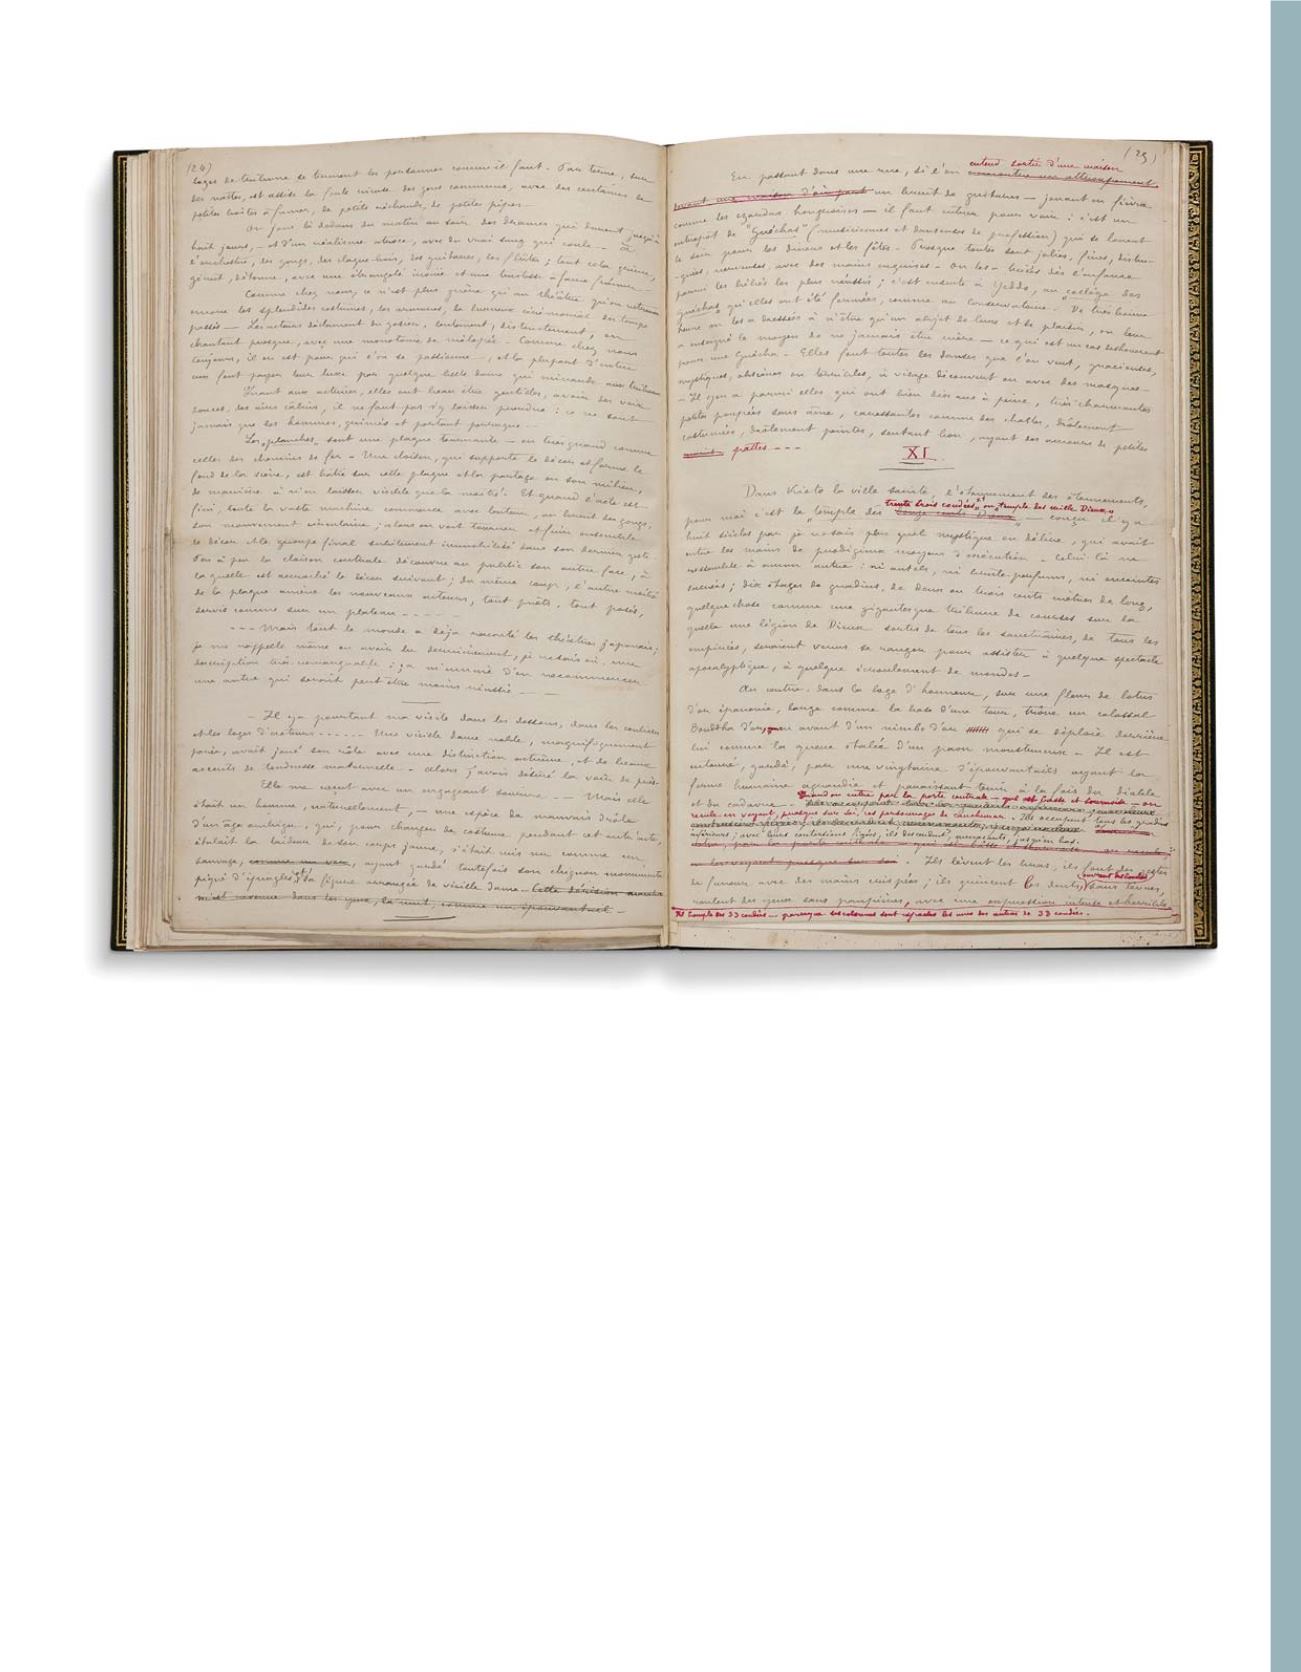 (24)
loges de tribune se tiennent les personnes comme il faut. Par terre, sur
des nattes, est assise la foule menue des gens communs, avec des centaines de
petites boîtes à fumer, de petits réchauds, de petites pipes.
On joue là dedans du matin au soir des drames qui durent jusqu'à
huit jours, – et d'un réalisme atroce, avec du vrai sang qui coule – à
l'orchestre, des gongs, des claque-bois, des guitares, des flûtes ; tout cela grince,
gémit, détonne, avec une étrangeté inouïe et une tristesse à faire frémir –
Comme chez nous, ce n'est plus guère qu'au théâtre qu'on retrouve
encore les splendides costumes, les armures, le luxueux cérémonial des temps
passés – Les acteurs déclament du gosier, lentement, en
chantant presque, avec une monotonie de mélopée – Comme chez nous
toujours, il en est pour qui l'on se passionne –, et la plupart d'entre
eux font payer leur luxe par quelque belle dame qui
Quant aux actrices, elles ont beau être gentilles, avoir des voix
douces, des airs câlins, il ne faut pas s'y laisser prendre : ce ne sont
jamais que des hommes, grimés et portant perruque –
Les "planches" sont une plaque tournante – en très grand comme
celles des chemins de fer – Une cloison, qui supporte le décor et forme le
fond de la scène, est bâtie sur cette plaque et la partage en son milieu,
de manière à n'en laisser visible que la moitié. Et quand l'acte est
fini, toute la vaste machine commence avec lenteur, au bruit des gongs,
son mouvement circulaire ; alors on voit tourner et fuir ensemble
le décor et le groupe final subitement immobilisé dans son dernier geste
Peu à peu la cloison centrale découvre au public son autre face, à
laquelle est accroché le décor suivant ; du même coup, l'autre moitié
de la plaque amène les nouveaux acteurs, tout prêts, tout posés,
servis comme sur un plateau – – – –
– – – Mais tout le monde a déjà raconté les théâtres japonais ;
je me rappelle même en avoir lu dernièrement, je ne sais où, une
description très remarquable ; ça m'ennuie d'en recommencer
une autre qui serait peut être moins réussie – – –
– Il y a pourtant ma visite dans les dessous, dans les coulisses
et les loges d'acteurs . . . . . . Une vieille dame noble, magnifiquement
parée, avait joué son rôle avec une distinction extrême, et de beaux
accents de tendresse maternelle – Alors j'avais désiré la voir de près
Elle me reçut avec un engageant sourire – – Mais elle
était un homme, naturellement, – une espèce de mauvais drôle
d'un âge ambigu, qui, pour changer de costume pendant cet entr'acte,
étalait la laideur de son corps jaune, s'était mis nu comme un
sauvage, comme un ver, ayant gardé toutefois son chignon monumental
piqué d'épingles, et sa figure arrangée de vieille dame – Cette dérision
m'est revenue dans les yeux, la nuit, comme un épouvantail –
(25)
entend sortir d'une maison
En passant dans une rue, si l'on
un bruit de guitares – jouant en fièvre
comme les czardas hongroises – il faut entrer pour voir : c'est un
entrepôt de "Guéchas" (musiciennes et danseuses de profession) qui se louent
le soir pour les dîners et les fêtes – Presque toutes sont jolies, fines, distin-
-guées, nerveuses, avec des mains exquises – On les a choisies dès l'enfance
parmi les bébés les plus réussis ; c'est ensuite à Yeddo, au collège des
guéchas qu'elles ont été formées, comme au Conservatoire – De très bonne
heure on les a dressées à n'être qu'un objet de luxe et de plaisir, on leur
a enseigné le moyen de ne jamais être mère – ce qui est un cas déshonorant
pour une Guécha – Elles font toutes les danses que l'on veut, gracieuses,
mystiques, obscènes ou terribles, à visage découvert ou avec des masques –
– Il y en a parmi elles qui ont bien dix ans à peine, très charmantes
petites poupées sans âme, caressantes comme des chattes, drôlement
costumées, drôlement peintes, sentant bon, ayant des de petites
mains pattes – – –
XI.
Dans Kioto la ville sainte, l'étonnement des étonnements,
trente trois coudées" ou "temple des mille Dieux"
pour moi c'est le "temple des – conçu il y a
huit siècles par je ne sais plus quel mystique en délire, qui avait
entre les mains de prodigieux moyens d'exécution – Celui-là ne
ressemble à aucun autre : ni autels, ni brûle-parfums, ni enceintes
sacrées ; dix étages de gradins, de deux ou trois cents mètres de long,
quelque chose comme une gigantesque tribune de courses sur la
quelle une légion de Dieux sortis de tous les sanctuaires, de tous les
empirées, seraient venus se ranger pour assister à quelque spectacle
apocalyptique, à quelque écroulement de mondes –
Au centre, dans la loge d'honneur, sur une fleur de lotus
d'or épanouie, large comme la base d'une tour, trône un colossal
Bouddha d'or, en avant d'un nimbe d'or qui se déploie derrière
lui comme la queue étalée d'un paon monstrueux – Il est
entouré, gardé, par une vingtaine d'épouvantails ayant la
forme humaine agrandie et paraissant tenir à la fois du diable
et du cadavre – Quand on entre par la porte centrale – qui est basse et sournoise – on
recule en voyant, presque sur soi, ces personnages de cauchemar. Ils occupent tous les gradins
inférieurs ; avec leurs contorsions figées, ils descendent, menaçants, jusqu'en bas.
en les voyant presque sur soi. Ils lèvent les bras, ils font des gestes
de fureur avec des mains crispées ; ils grincent les dents, ouvrent des bouches sans lèvres,
roulent des yeux sans paupières, avec une expression intense et horrible
Temple des 33 coudées – parce que ses colonnes sont espacées les unes des autres de 33 coudées.